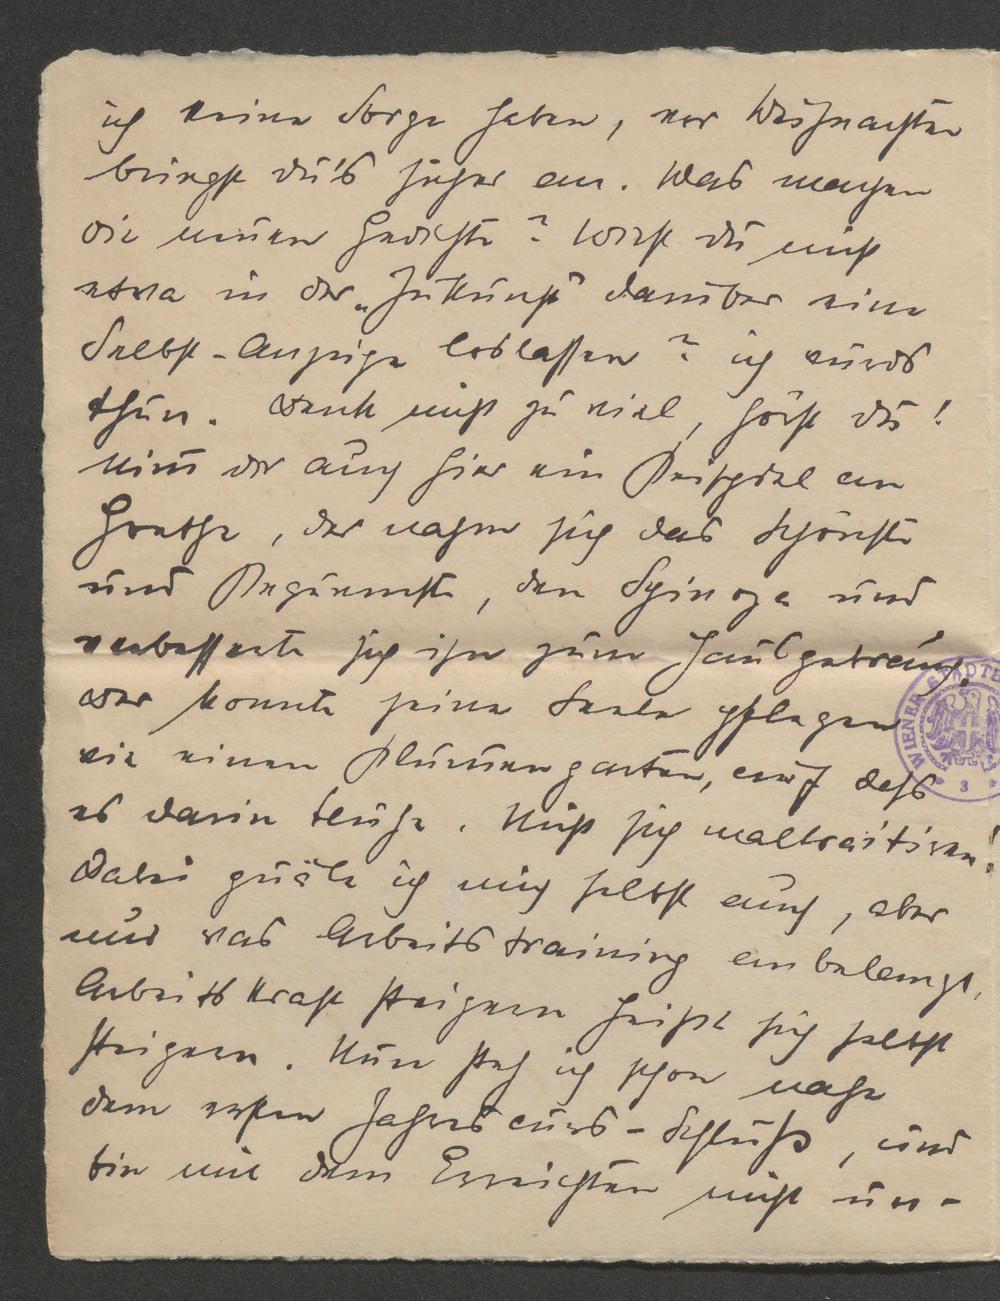 ich keine Sorge haben, vor Weihnachten
bringst du's sicher an. Was machen
die neuen Gedichte? Wirst du nicht
etwa in der „Zukunft" darüber eine
Selbst-Anzeige loslassen? ich würds
thun. Denk nicht zu viel, hörst du!
Nim dir auch hier ein Beispiel an
Goethe, der nahm sich das Schönste
und Bequemste, den Spinoza und
verbesserte sich ihn zum Hausgebrauch.
Der konnte seine Seele pflegen
wie einen Blumengarten, auf dass
es darin blühe. Nicht sich maltraitiren!
Dabei quäle ich mich selbst auch, aber
nur was Arbeitstraining anbelangt,
Arbeitskraft steigern heisst sich selbst
steigern. Nun steh ich schon nahe
dem ersten Jahrescurs-Schluß, und
bin mit dem Erreichten nicht un-
WIENER STÄDT
3